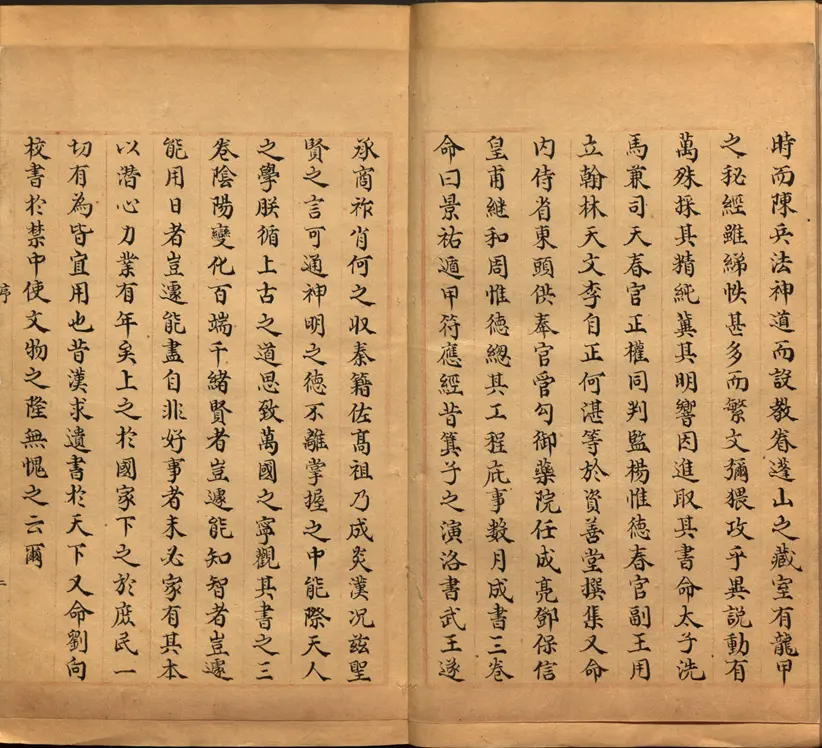 時而陳兵法神道而設教眷蓬山之藏室有龍甲
之秘經雖綈帙甚多而繁文彌猥攻乎異説動有
萬殊採其精純冀其明響因進取其書命太子洗
馬兼司天春官正權同判監楊惟德春官副王用
立翰林天文李自正何湛等於資善堂撰集又命
内侍省東頭供奉官管勾御藥院任成亮鄧保信
皇甫継和周惟德總其工程庇事数月成書三卷
命曰景祐遁甲符應經昔箕子之演洛書武王遂
承商祚肖何之収秦籍佐髙祖乃成炎漢况兹聖
賢之言可通神明之德不離掌握之中能際天人
之學朕循上古之道思致萬國之寧觀其書之三
卷陰陽變化百端千緒賢者豈遽能知智者豈遽
能用日者豈遽能盡自非好事者未必家有其本
以潛心力業有年矣上之於國家下之於庶民一
切有為皆宜用也昔漢求遺書於天下又命劉向
校書於禁中使文物之隆無愧之云爾
序
二